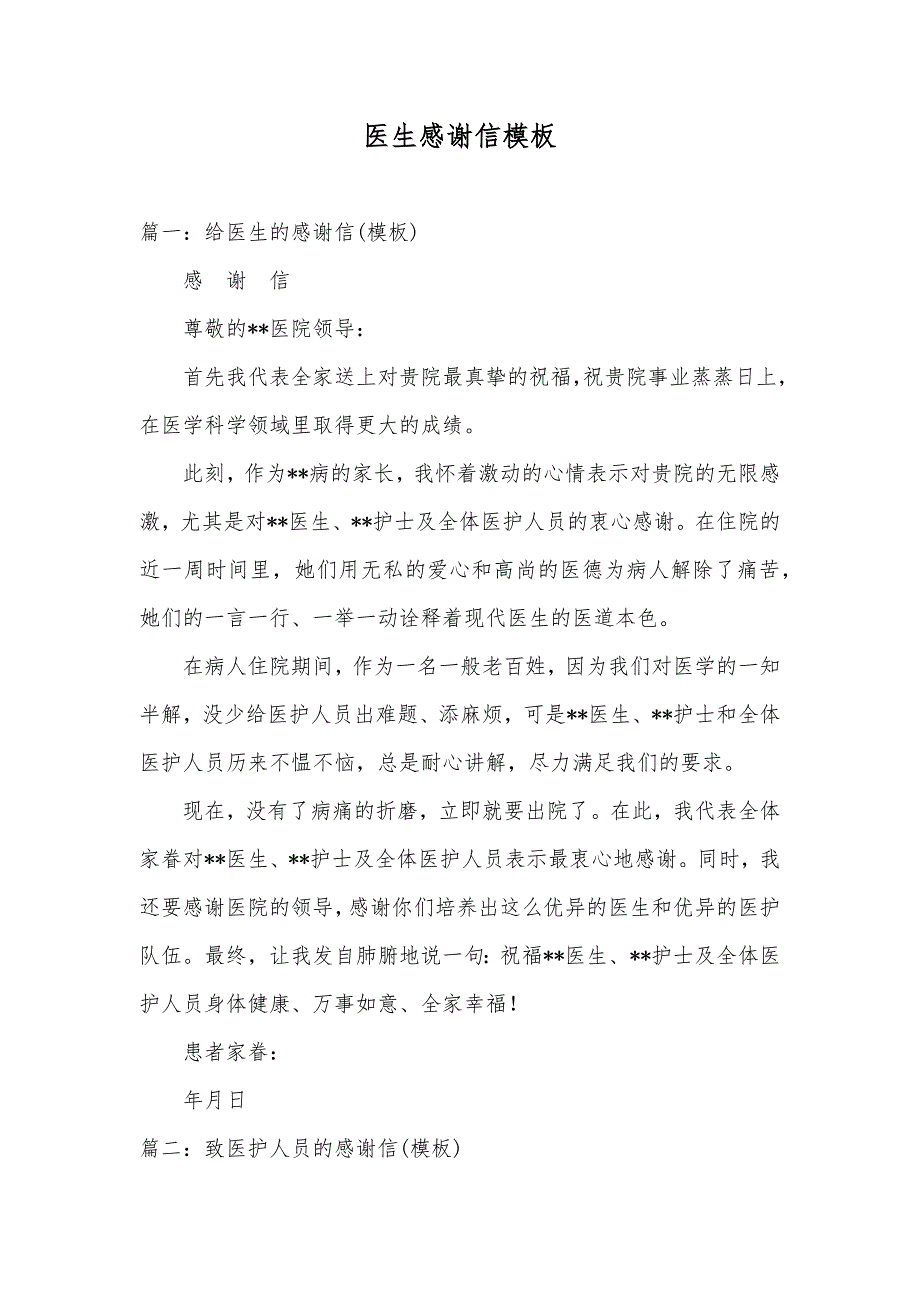 医生感谢信模板
篇一：给医生的感谢信(模板)
感　谢　信
尊敬的**医院领导：
首先我代表全家送上对贵院最真挚的祝福，祝贵院事业蒸蒸日上，
在医学科学领域里取得更大的成绩。
此刻，作为**病的家长，我怀着激动的心情表示对贵院的无限感
激，尤其是对**医生、**护士及全体医护人员的衷心感谢。在住院的
近一周时间里，她们用无私的爱心和高尚的医德为病人解除了痛苦，
她们的一言一行、一举一动诠释着现代医生的医道本色。
在病人住院期间，作为一名一般老百姓，因为我们对医学的一知
半解，没少给医护人员出难题、添麻烦，可是**医生、**护士和全体
医护人员历来不愠不恼，总是耐心讲解，尽力满足我们的要求。
现在，没有了病痛的折磨，立即就要出院了。在此，我代表全体
家眷对**医生、**护士及全体医护人员表示最衷心地感谢。同时，我
还要感谢医院的领导，感谢你们培养出这么优异的医生和优异的医护
队伍。最终，让我发自肺腑地说一句：祝福**医生、**护士及全体医
护人员身体健康、万事如意、全家幸福！
患者家眷：
年月日
篇二：致医护人员的感谢信(模板)